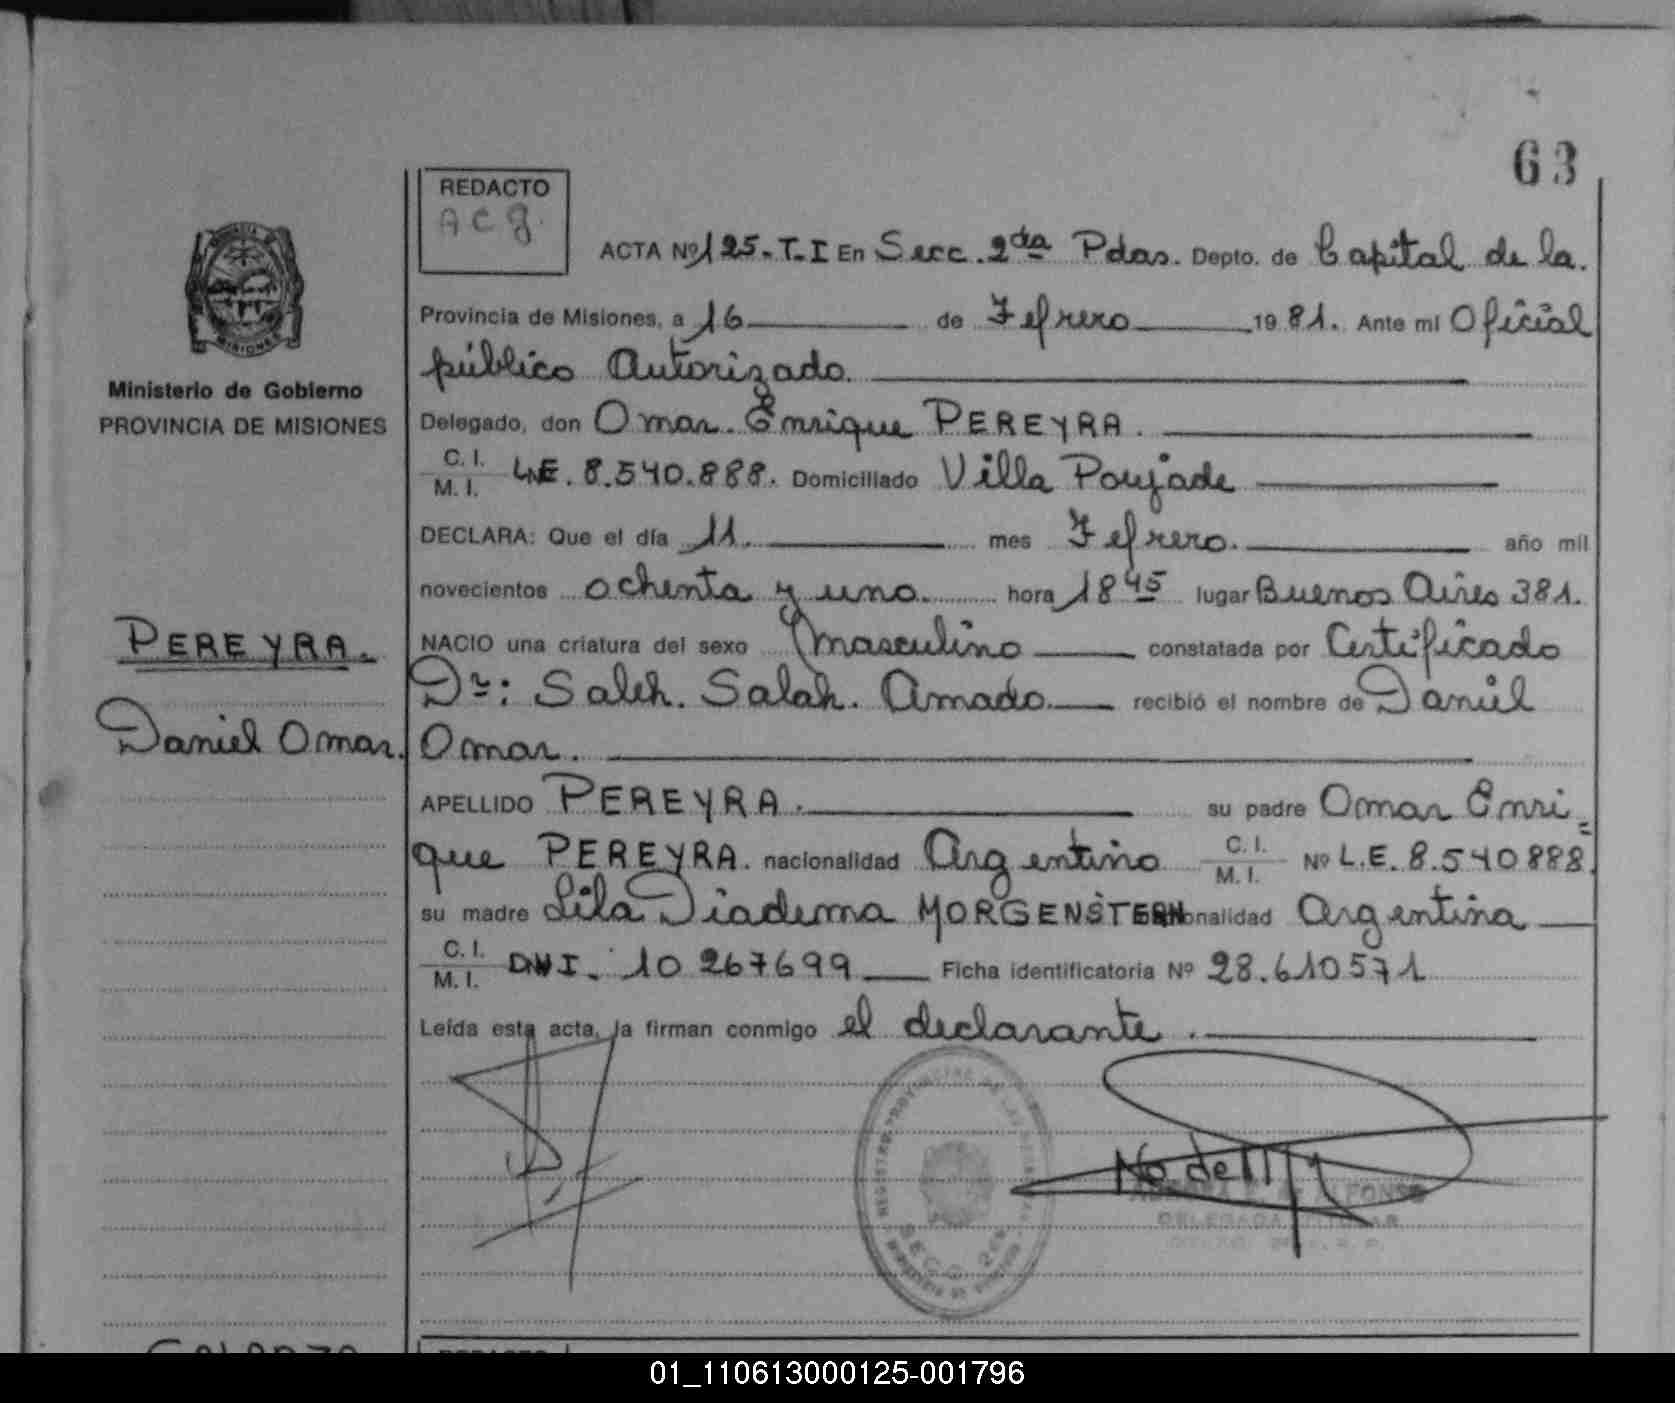 63
REDACTO
ACg.
ACTA Nº 125-T.I En Secc. 2da Pdas. Depto. de Capital de la.
Provincia de Misiones, a 16 de Febrero 1981. Ante mí Oficial
público Autorizado.
Ministerio de Gobierno
PROVINCIA DE MISIONES
Delegado, don Omar. Enrique PEREYRA.
C.I. M.I. L.E. 8.540.888. Domiciliado Villa Poujade
DECLARA: Que el día 11. mes Febrero. año mil
novecientos ochenta y uno. hora 18 45 lugar Buenos Aires 381.
PEREYRA.
NACIO una criatura del sexo masculino constatada por Certificado
Dr: Saleh. Salah. Amado. recibió el nombre de Daniel
Daniel Omar.
Omar.
APELLIDO PEREYRA. su padre Omar Enri=
que PEREYRA. nacionalidad Argentino C.I. M.I. Nº L.E. 8.540888.
su madre Lila Diadema MORGENSTERN onalidad Argentina
C.I. M.I. DNI. 10267699 Ficha identificatoria Nº 28.610571
Leída esta acta, la firman conmigo el declarante.
SECC. 2da
ALFONSO
DELEGADA TITULAR
REDACTO
01_110613000125-001796